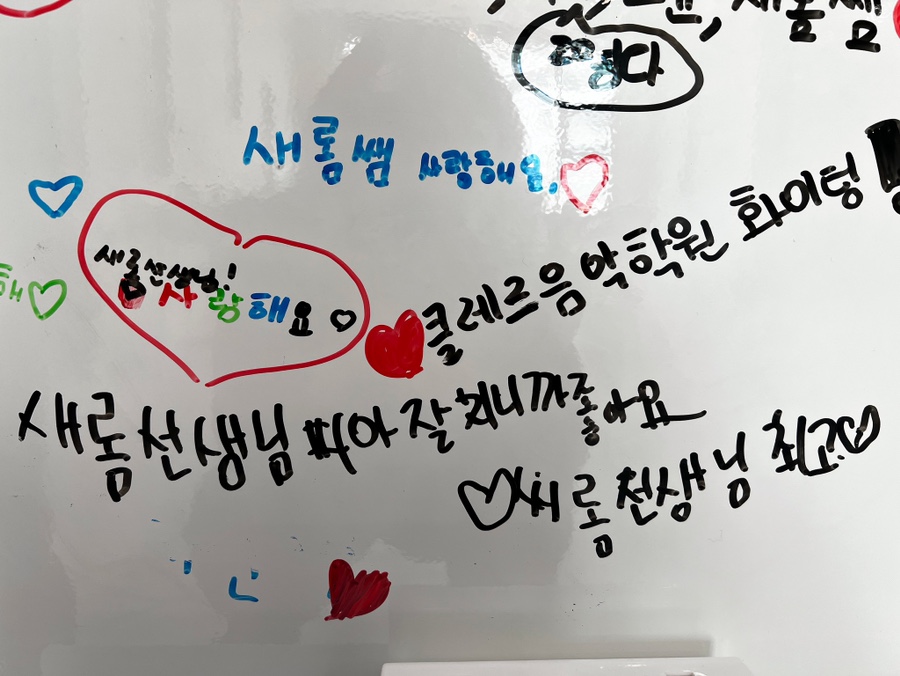 새롬쌤
새롬쌤 사랑해요.
새롬선생님!
사랑해요
해
클레르음악학원 화이팅
새롬선생님 피아 잘 치니까 좋아요
새롬선생님 최고